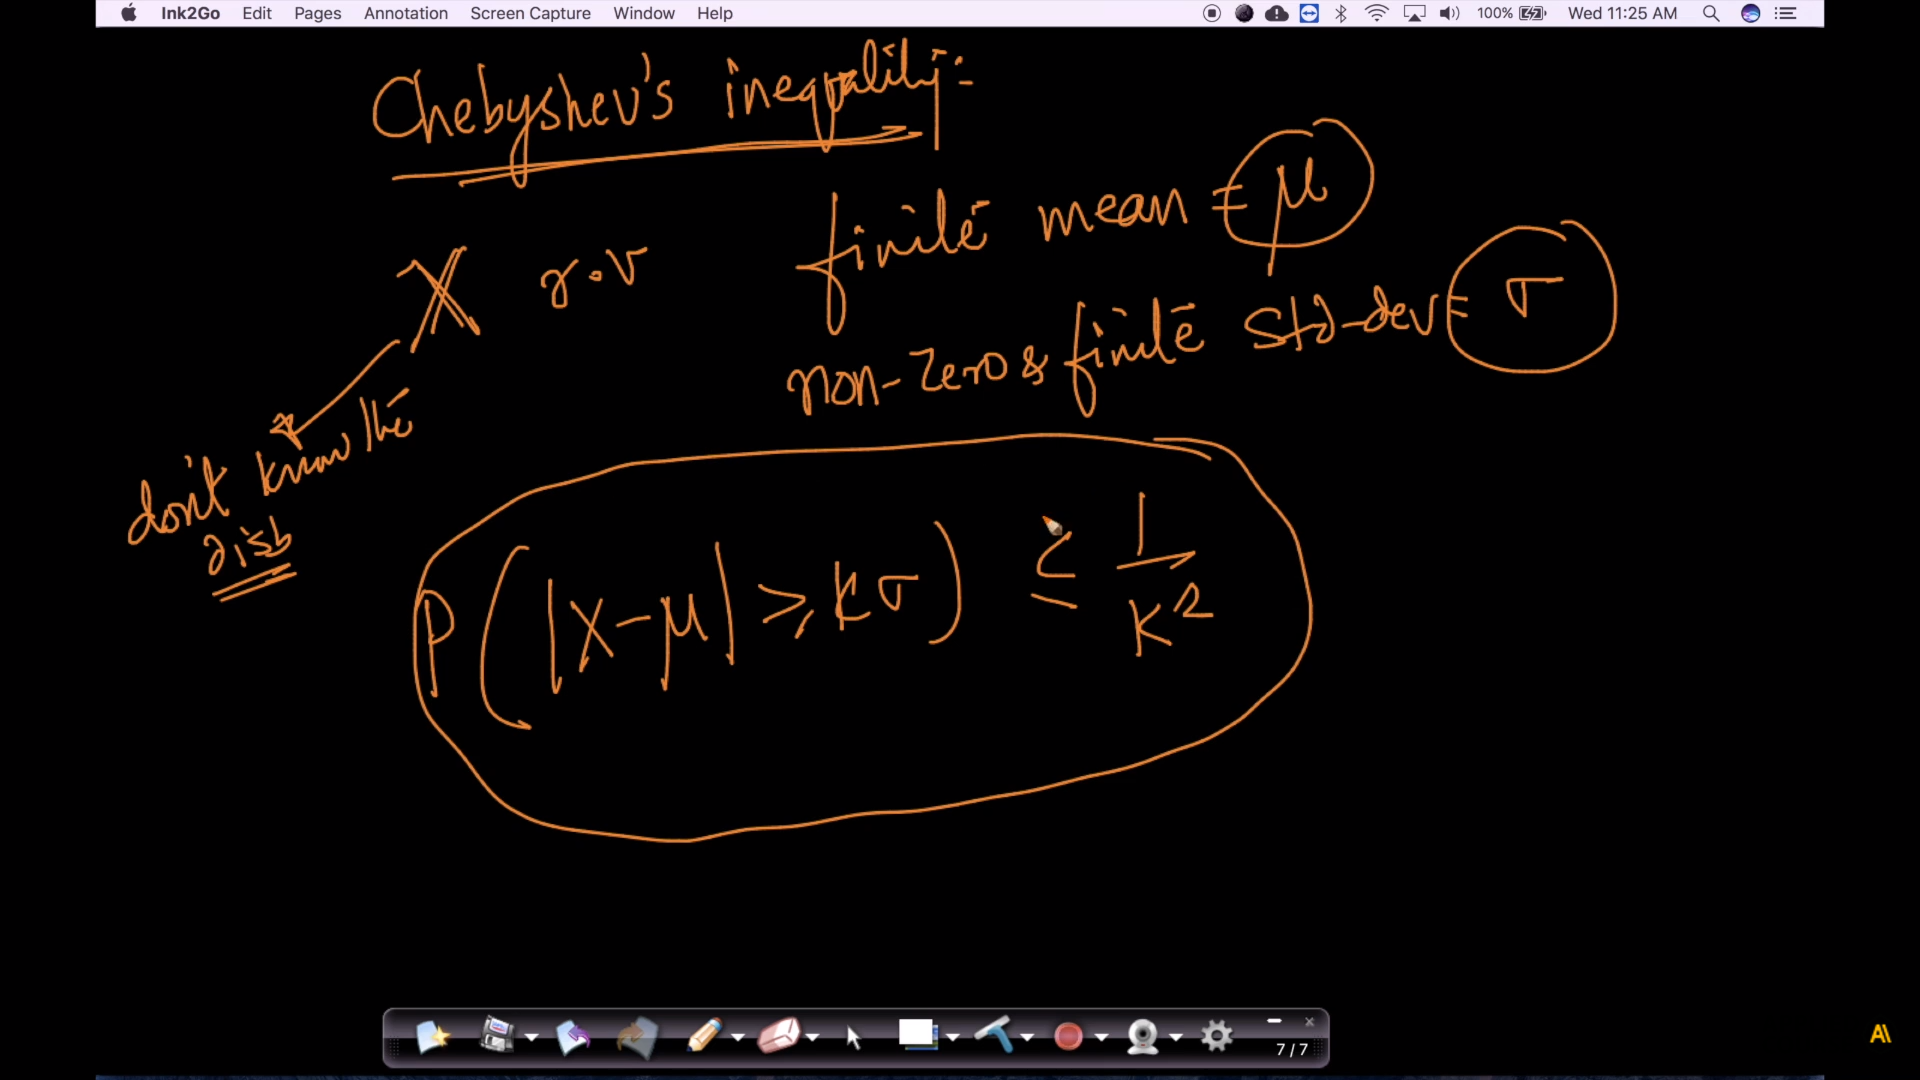 Ink2Go Edit Pages Annotation Screen Capture Window Help 100% Wed 11:25 AM
Chebyshev's inequality:-
X r.v finite mean = μ
non-zero & finite std-dev = σ
don't know the
disb
P(|X-μ| ⩾ kσ) ≤ 1/k²
7/7